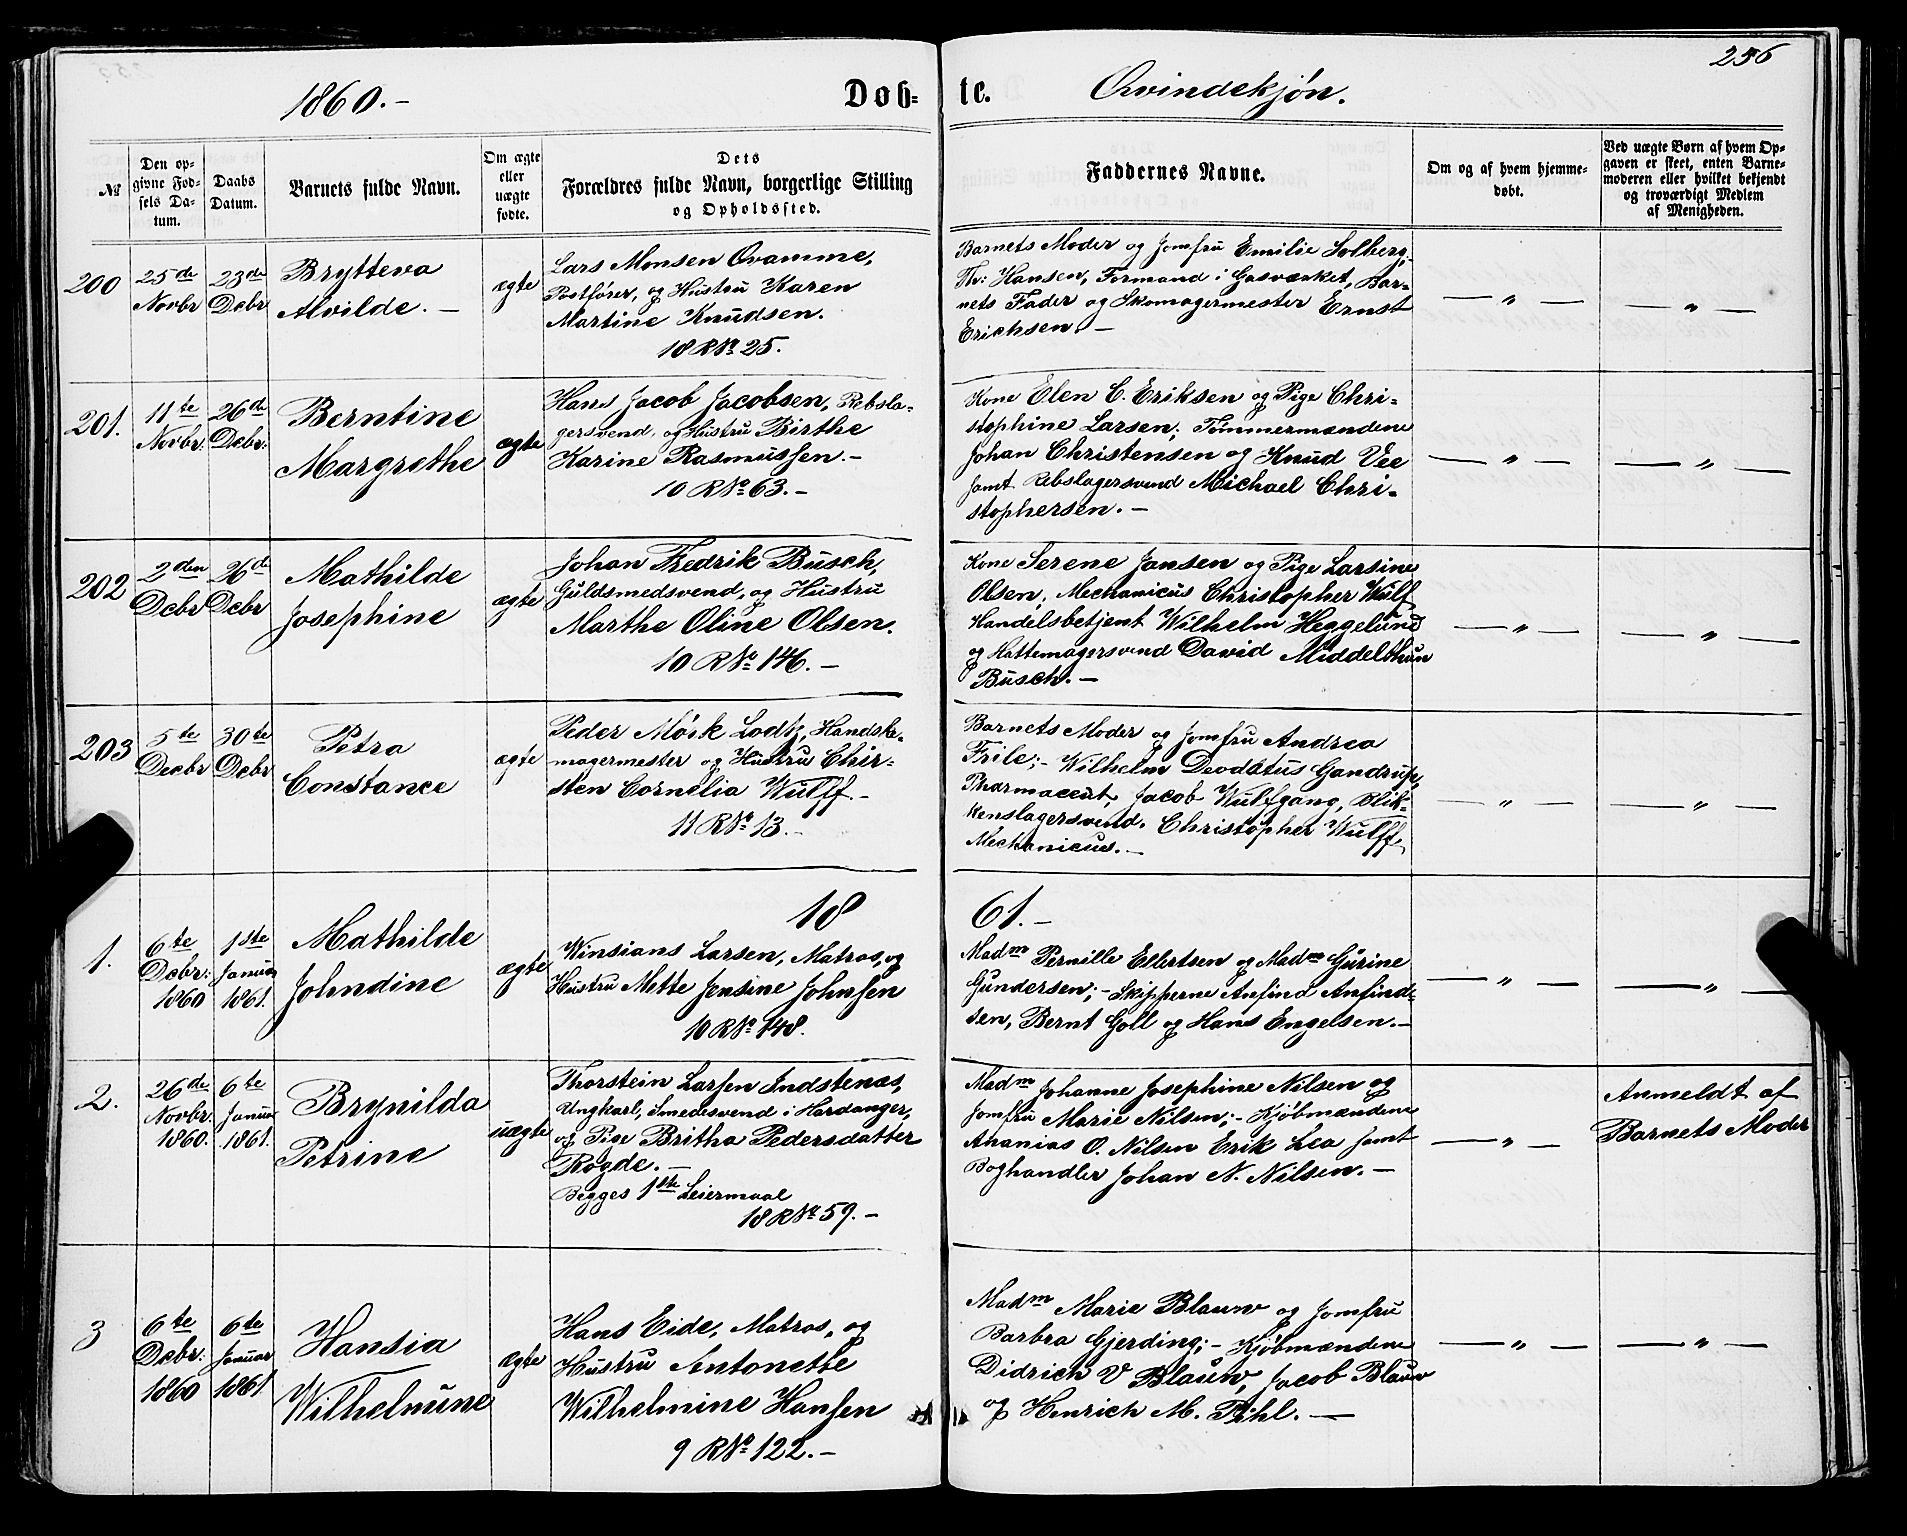 256
1860.-
Döb-
te.
Qvindekjøn.
№
Den op-
givne Fød-
sels Da-
tum.
Daabs
Datum.
Barnets fulde Navn.
Om ægte
eller
uægte
fødte.
Dets
Forældres fulde Navn, borgerlige Stilling
og Opholdssted.
Faddernes Navne.
Om og af hvem hjemme-
døbt.
Ved uægte Børn af hvem Op-
gaven er skeet, enten Barne-
moderen eller hvilket bekjendt
og troværdigt Medlem
af Menigheden.
200
25de
Novbr
23de
Dcbr
Brytteva
Alvilde. -
ægte
Lars Monsen Qvamme,
Postfører, og Hustru Karen
Martine Knudsen.
18 R № 25.
Barnets Moder og Jomfru Emilie Solberg,
Th: Hansen, Formand i Gasværket, Bar-
nets Fader og Skomagermester Ernst
Erichsen. -
— " —
— " —
201.
11te
Novbr:
26de
Dcbr:
Berntine
Margrethe
ægte
Hans Jacob Jacobsen, Rebsla-
gersvend, og Hustru Birthe
Karine Rasmussen. -
10 R № 63. -
Kone Elen C. Eriksen og Pige Chri-
stophine Larsen; Tømmermændene
Johan Christensen og Knud Vee
samt Rebslagersvend Michael Chri-
stophersen. -
— " —
— " —
202
2den
Dcbr
26de
Dcbr
Mathilde
Josephine
ægte
Johan Fredrik Busch,
Guldsmedsvend, og Hustru
Marthe Oline Olsen.
10 R № 146. -
Kone Serene Jansen og Pige Larsine
Olsen; Mechanicus Christopher Wulf
Handelsbetjent Wilhelm Heggelund
og Hattemagersvend David Middelthun
Busch. -
— " —
— " —
203
5te
Decbr
30te
Dcbr
Petra
Constance
ægte
Peder Mørk Lodtz, Handske-
magermester og Hustru Chir-
sten Cornelia Wulff. -
11 R № 13. -
Barnets Moder og Jomfru Andrea
Friele; - Wilhelm Deodatus Gandrup,
Pharmaceut, Jacob Wulfgang, Blik-
kenslagersvend. Christopher Wulff,
Mechanicus. -
— " —
— " —
18
61. -
1.
6te
Dcbr:
1860
1ste
Januar
1861.
Mathilde
Johndine
ægte
Winsians Larsen, Matros, og
Hustru Mette Jensine Johnsen
10 R № 148.
Madm Pernille Ellertsen og Madm Gurine
Gundersen; - Skipperne Anfind Anfind-
sen, Bernt Goll og Hans Engelsen. -
— " —
— " —
2.
26de
Novbr
1860.
6te
Januar
1861.
Brynilda
Petrine
uægte
Thorstein Larsen Indstenæs,
Ungkarl, Smedesvend i Hardanger,
og Pige Britha Pedersdatter
Røgde. -
Begges 1ste Leiermaal
18 R № 59. -
Madm Johanne Josephine Nilsen og
Jomfru Marie Nilsen; - Kjøbmændene
Ananias O. Nilsen Erik Lea samt
Boghandler Johan N. Nilsen. -
— " —
Anmeldt af
Barnets Moder
3
6te
Dcbr:
1860
6te
Januar
1861
Hansia
Wilhelmine
ægte
Hans Eide, Matros, og
Hustru Antonette
Wilhelmine Hansen
9 R № 122. -
Madm Marie Blauw og Jomfru
Barbra Gjerding; - Kjøbmændene
Didrich V Blauw, Jacob Blauw
og Henrich M. Pihl. -
— " —
— " —